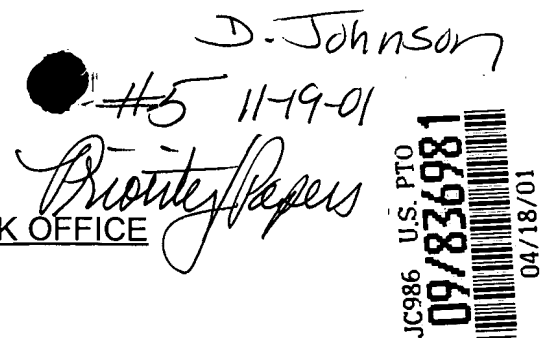 D. Johnson
#5 11-19-01
Priority Papers
K OFFICE
JC986 U.S. PTO
09/836981
04/18/01